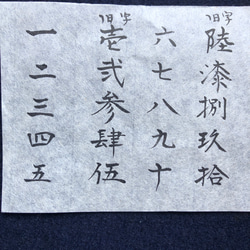 一二三四五
旧字
壱弐参肆伍
六七八九十
旧字
陸漆捌玖拾